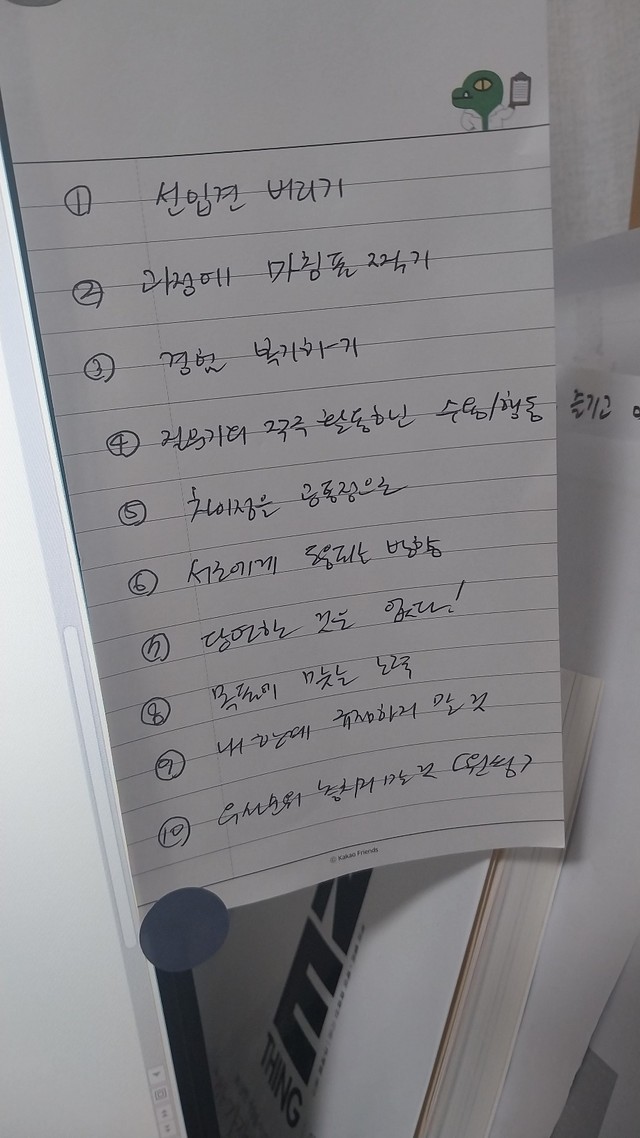 ① 선입견 버리기
② 과정에 마침표 찍기
③ 경험 복기하기
④ 적극 활동하닌 수용/행동
즐기고
⑤ 차이점은 공통점으로
⑥ 서로에게 도움되는 방향
⑦ 당연하는 것은 없다!
⑧ 목표에 맞는 노력
⑨ 내 하지 말 것
⑩ 우선순위 놓치지 말 것
© Kakao Friends
THING